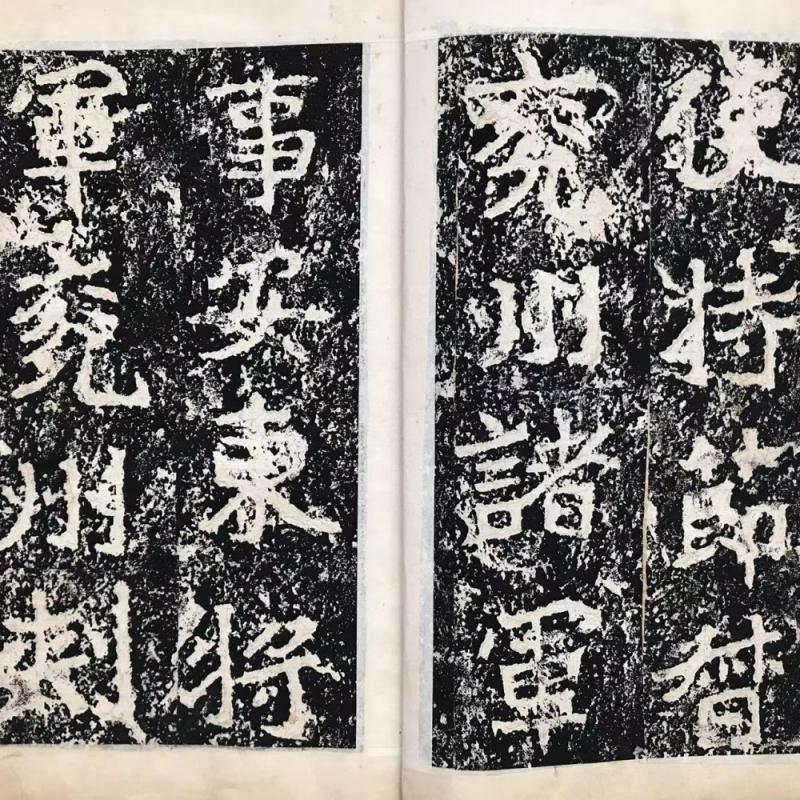 使持節督
兗州諸軍
事安東將
軍兗州刺